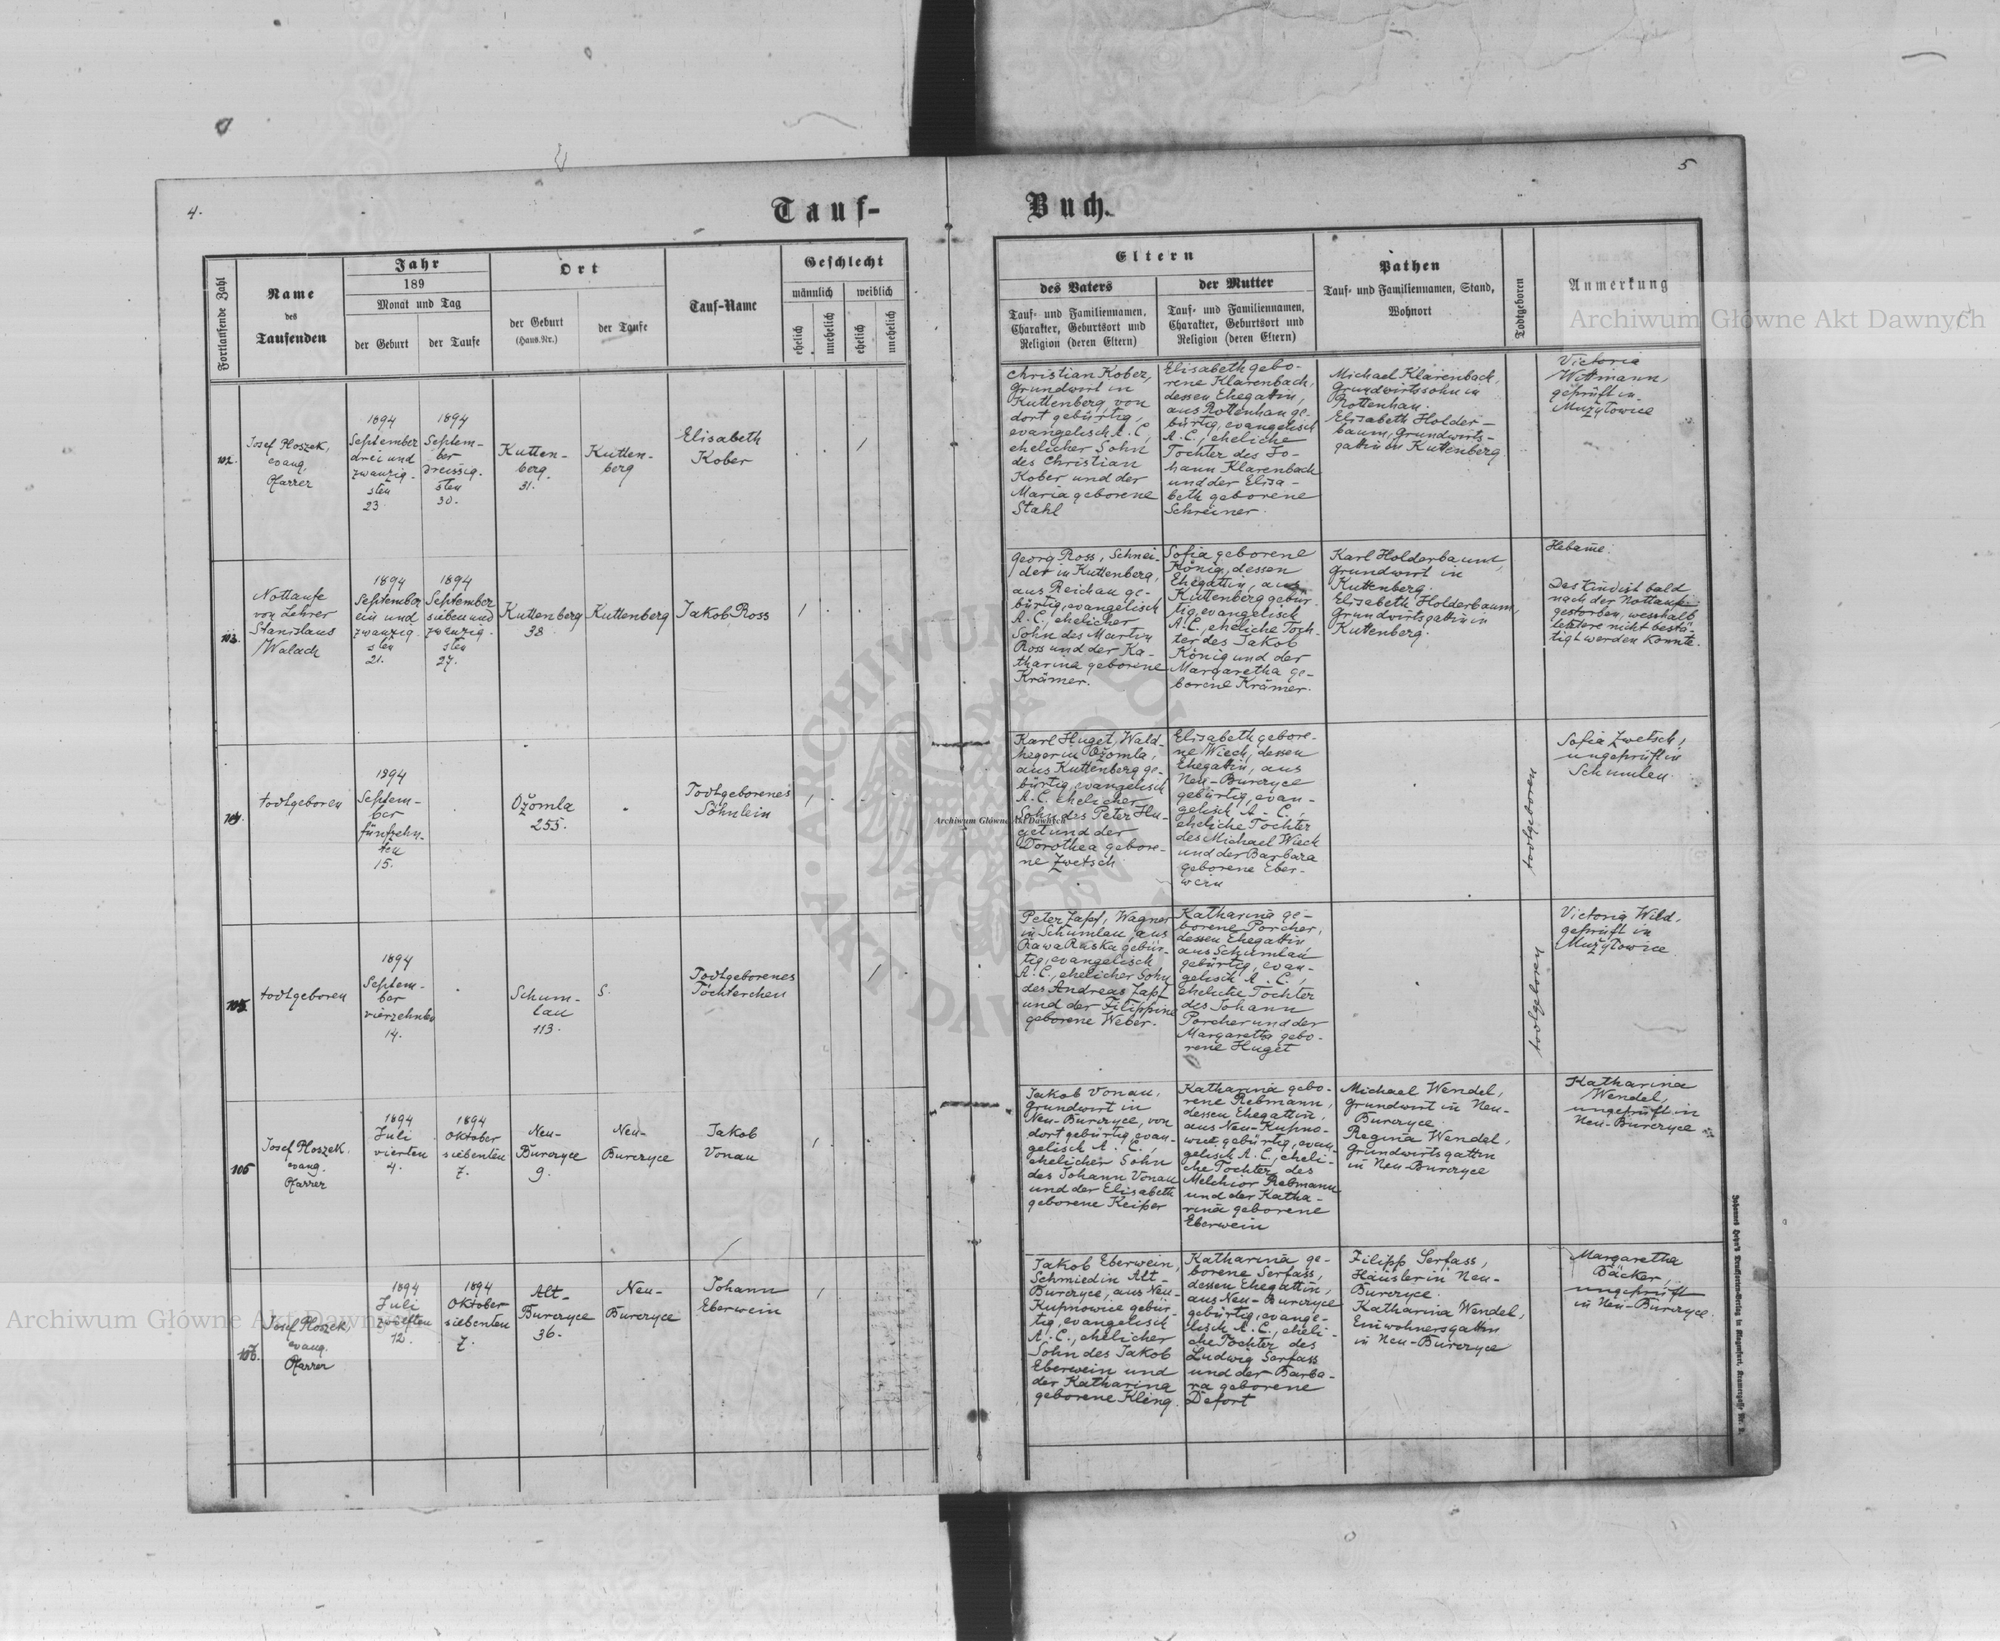 4.
5
Tauf-
Buch.
Fortlaufende Zahl
Name
des
Taufenden
Jahr
189
Monat und Tag
der Geburt
der Taufe
Ort
der Geburt
(Haus-Nr.)
der Taufe
Tauf-Name
Geschlecht
männlich
weiblich
ehelich
unehelich
ehelich
unehelich
Eltern
des Vaters
Tauf- und Familiennamen,
Charakter, Geburtsort und
Religion (deren Eltern)
der Mutter
Tauf- und Familiennamen,
Charakter, Geburtsort und
Religion (deren Eltern)
Pathen
Tauf- und Familiennamen, Stand,
Wohnort
Todtgeboren
Anmerkung
102.
Josef Ploszek,
evang.
Pfarrer
1894
September
drei und
zwanzig-
sten
23
1894
Septem-
ber
dreissig-
sten
30.
Kutten-
berg.
31.
Kutten-
berg
Elisabeth
Kober
Christian Kober,
Grundwirt in
Kuttenberg, von
dort gebürtig,
evangelisch A.C.,
ehelicher Sohn
des Christian
Kober und der
Maria geborene
Stahl
Elisabeth gebo-
rene Klarenbach,
dessen Ehegattin,
aus Rottenhan ge-
bürtig, evangelisch
A.C., eheliche
Tochter des Jo-
hann Klarenbach
und der Elisa-
beth geborene
Schreiner.
Michael Klarenbach,
Grundwirtssohn in
Rottenhan.
Elisabeth Holder-
baum, Grundwirts-
gattin in Kuttenberg
Victoria
Wittmann,
geprüft in
Mużyłowice
103.
Nottaufe
von Lehrer
Stanislaus
Walach
1894
September
ein und
zwanzig-
sten
21.
1894
September
sieben und
zwanzig-
sten
27.
Kuttenberg
38
Kuttenberg
Jakob Ross
Georg Ross, Schnei-
der in Kuttenberg,
aus Reichau ge-
bürtig, evangelisch
A.C., ehelicher
Sohn des Martin
Ross und der Ka-
tharina geborene
Krämer.
Sofia geborene
König, dessen
Ehegattin, aus
Kuttenberg gebür-
tig, evangelisch
A.C., eheliche Toch-
ter des Jakob
König und der
Margaretha ge-
borene Krämer.
Karl Holderbaum,
Grundwirt in
Kuttenberg.
Elisabeth Holderbaum
Grundwirtsgattin in
Kuttenberg.
Hebame:
Das Kind ist bald
nach der Nottaufe
gestorben, wesshalb
letztere nicht bestä-
tigt werden konnte.
104.
todtgeboren
1894
Septem-
ber
fünfzehn-
ten
15.
Ożomla
255.
Todtgeborenes
Söhnlein
Karl Huget, Wald-
heger in Ożomla,
aus Kuttenberg ge-
bürtig, evangelisch
A.C. ehelicher
Sohn des Peter Hu-
get und der
Dorothea gebore-
ne Zwetsch
Elisabeth gebore-
ne Wiech, dessen
Ehegattin, aus
Neu-Burczyce
gebürtig, evan-
gelisch A.C.,
eheliche Tochter
des Michael Wack
und der Barbara
geborene Eber-
wein
todtgeboren
Sofia Zwetsch,
ungeprüft in
Schumlau.
105.
todtgeboren
1894
Septem-
ber
vierzehnten
14.
Schum-
lau
113.
Todtgeborenes
Töchterchen
Peter Zapf, Wagner
in Schumlau, aus
Rawa Ruska gebür-
tig, evangelisch
A.C., ehelicher Sohn
des Andreas Zapf
und der Filippine
geborene Weber.
Katharina ge-
borene Porcher,
dessen Ehegattin
aus Schumlau
gebürtig, evan-
gelisch A.C.,
eheliche Tochter
des Johann
Porcher und der
Margaretha gebo-
rene Huget
todtgeboren
Victoria Wild,
geprüft in
Mużyłowice
106
Josef Ploszek.
evang.
Pfarrer
1894
Juli
vierten
4.
1894
Oktober
siebenten
7.
Neu-
Burczyce
9.
Neu-
Burczyce
Jakob
Vonau
Jakob Vonau,
Grundwirt in
Neu-Burczyce, von
dort gebürtig, evan-
gelisch A.C.,
ehelicher Sohn
des Johann Vonau
und der Elisabeth
geborene Keiper
Katharina gebo-
rene Rebmann,
dessen Ehegattin,
aus Neu-Kupno-
wice gebürtig, evan-
gelisch A.C., eheli-
che Tochter des
Melchior Rebmann
und der Katha-
rina geborene
Eberwein
Michael Wendel,
Grundwirt in Neu-
Burczyce
Regina Wendel,
Grundwirtsgattin
in Neu-Burczyce
Katharina
Wendel,
ungeprüft in
Neu-Burczyce
107.
Josef Ploszek,
evang.
Pfarrer
1894
Juli
zwölften
12.
1894
Oktober
siebenten
7.
Alt-
Burczyce
36.
Neu-
Burczyce
Johann
Eberwein
Jakob Eberwein,
Schmied in Alt-
Burczyce, aus Neu-
Kupnowice gebür-
tig, evangelisch
A.C., ehelicher
Sohn des Jakob
Eberwein und
der Katharina
geborene Kling.
Katharina ge-
borene Serfass,
dessen Ehegattin,
aus Neu-Burczyce
gebürtig, evange-
lisch A.C., eheli-
che Tochter des
Ludwig Serfass
und der Barba-
ra geborene
Defort
Filipp Serfass,
Häusler in Neu-
Burczyce.
Katharina Wendel,
Einwohnersgattin
in Neu-Burczyce
Margaretha
Bäcker,
ungeprüft
in Neu-Burczyce.
Archiwum Główne Akt Dawnych
Archiwum Główne Akt Dawnych
Archiwum Główne Akt Dawnych